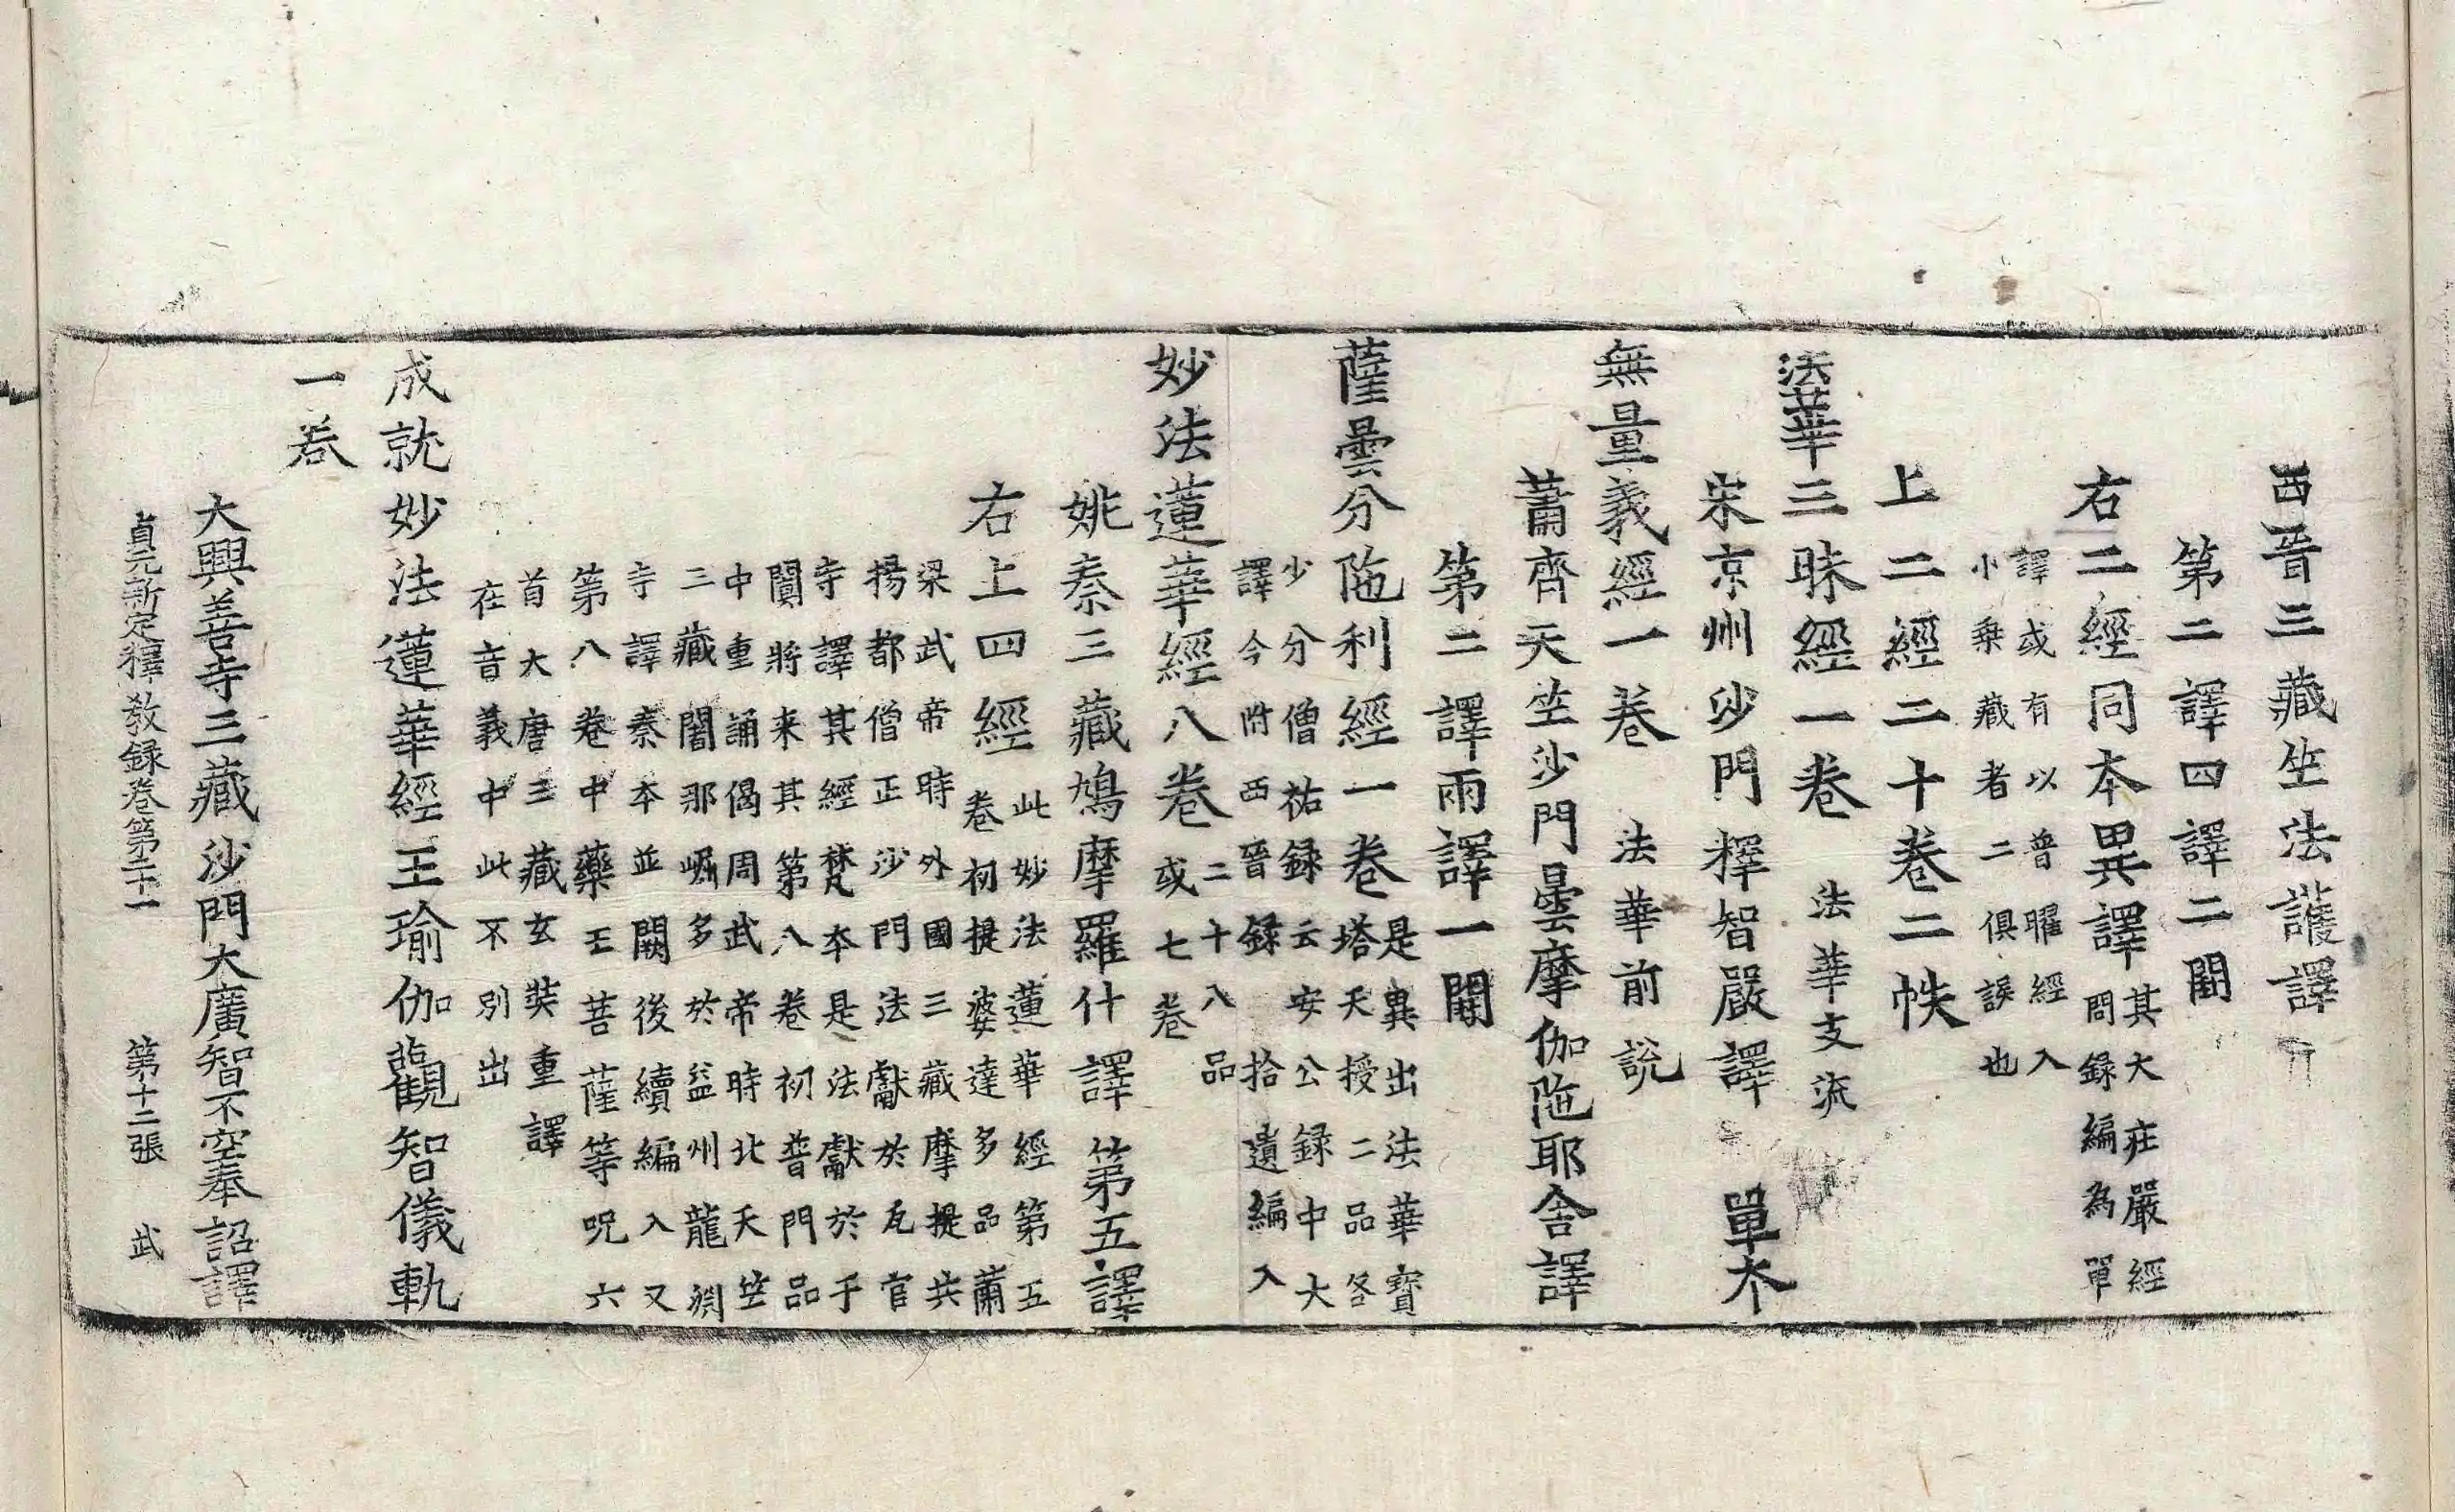 西晉三藏竺法護譯
第二譯四譯二闕
右二經同本異譯其大莊嚴經
問録編為單
譯或有以普曜經入
小乗藏者二俱誤也
上二經二十卷二帙
法華三昧經一卷 法華支流
宋京州沙門釋智嚴譯 單本
無量義經一卷 法華前説
蕭齊天竺沙門曇摩伽陁耶舎譯
第二譯兩譯一闕
薩曇分陁利經一卷是異出法華寶
塔天授二品各
少分僧祐録云安公録中大
譯今附西晉録拾遺編入
妙法蓮華經八卷二十八品
或七卷
姚秦三藏鳩摩羅什譯第五譯
右上四經此妙法蓮華經第五
卷初提婆達多品蕭
梁武帝時外國三藏摩提共
揚都僧正沙門法獻於瓦官
寺譯其經梵本是法獻於于
闐將来其第八卷初普門品
中重誦偈周武帝時北天竺
三藏闍那崛多於益州龍淵
寺譯秦本並闕後續編入又
第八卷中藥王菩薩等呪六
首大唐三藏玄奘重譯
在音義中此不別出
成就妙法蓮華經王瑜伽觀智儀軌
一卷
大興善寺三藏沙門大廣智不空奉詔譯
貞元新定釋教録卷第二十一 第十二張 武